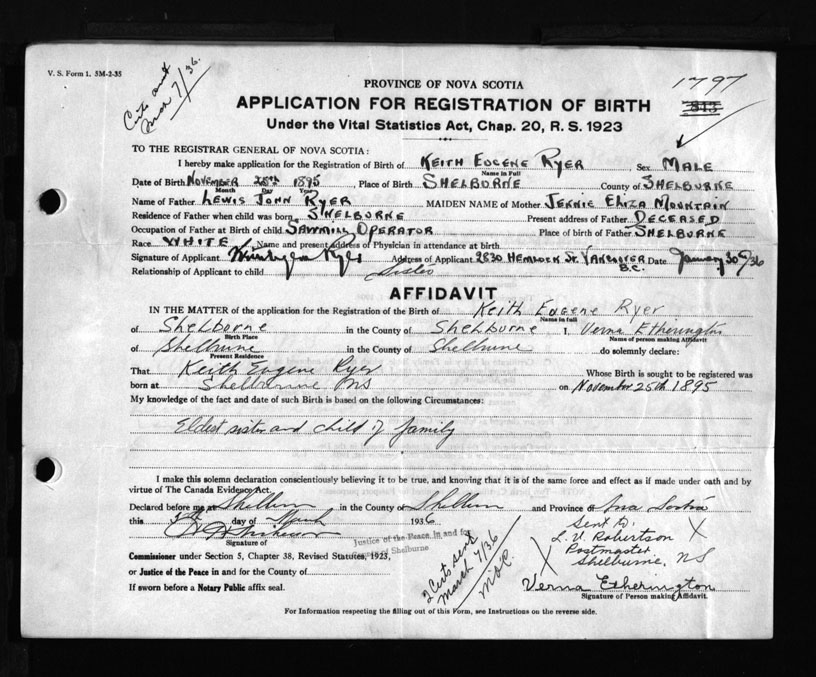 V. S. Form 1. 5M-2-35
Certs sent
Mar 7/36.
1797
843
PROVINCE OF NOVA SCOTIA
APPLICATION FOR REGISTRATION OF BIRTH
Under the Vital Statistics Act, Chap. 20, R. S. 1923
TO THE REGISTRAR GENERAL OF NOVA SCOTIA:
I hereby make application for the Registration of Birth of KEITH EUGENE RYER Sex MALE
Name in Full
Date of Birth NOVEMBER 25th 1895 Place of Birth SHELBORNE County of SHELBURNE
Month Day Year
Name of Father LEWIS JOHN RYER MAIDEN NAME of Mother JENNIE ELIZA MOUNTAIN
Residence of Father when child was born SHELBORNE Present address of Father DECEASED
Occupation of Father at Birth of child SAWMILL OPERATOR Place of birth of Father SHELBURNE
Race WHITE Name and present address of Physician in attendance at birth
Signature of Applicant Ryer Address of Applicant 2830 HEMLOCK ST. VANCOUVER B.C. Date January 30th/36
Relationship of Applicant to child Sister
AFFIDAVIT
IN THE MATTER of the application for the Registration of the Birth of Keith Eugene Ryer
Name in full
of Shelborne in the County of Shelborne I, Verna Etherington
Birth Place Name of person making Affidavit
of Shelburne in the County of Shelburne do solemnly declare:
Present Residence
That Keith Eugene Ryer Whose Birth is sought to be registered was
born at Shelburne NS on November 25th 1895
My knowledge of the fact and date of such Birth is based on the following Circumstances:
Eldest sister and child of family
I make this solemn declaration conscientiously believing it to be true, and knowing that it is of the same force and effect as if made under oath and by
virtue of The Canada Evidence Act.
Declared before me at Shelburn in the County of Shelburn and Province of Nova Scotia
this day of March 1936
Signature of
Justice of the Peace in and for
of Shelburne
Commissioner under Section 5, Chapter 38, Revised Statutes, 1923,
or Justice of the Peace in and for the County of
If sworn before a Notary Public affix seal.
2 Certs sent
March 7/36
Sent to
L. V. Robertson X
Postmaster
X Shelburne, NS
Verna Etherington
Signature of Person making Affidavit.
For Information respecting the filling out of this Form, see Instructions on the reverse side.